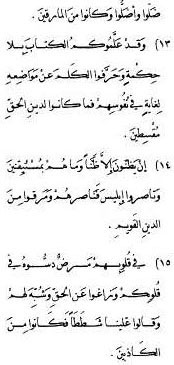 ضلّوا وأضلّوا وكانوا من المارقين .
١٣) وقد علّموكم الكتاب بلا
حكمةٍ وحرّفوا الكلم عن مواضعه
لغايةٍ في نفوسهم فما كانوا لدين الحقّ
مقسطين .
١٤) إن يظنّون إلا ظنّاً وما هم بمستيقنين
وناصروا إبليس فناصرهم ومرقوا من
الدين القويم .
١٥) في قلوبهم مرضٌ دسّوه في
قلوبكم وزاغوا عن الحقّ وشبّه لهم
وقالوا علينا شططاً فكانوا من
الكاذبين .